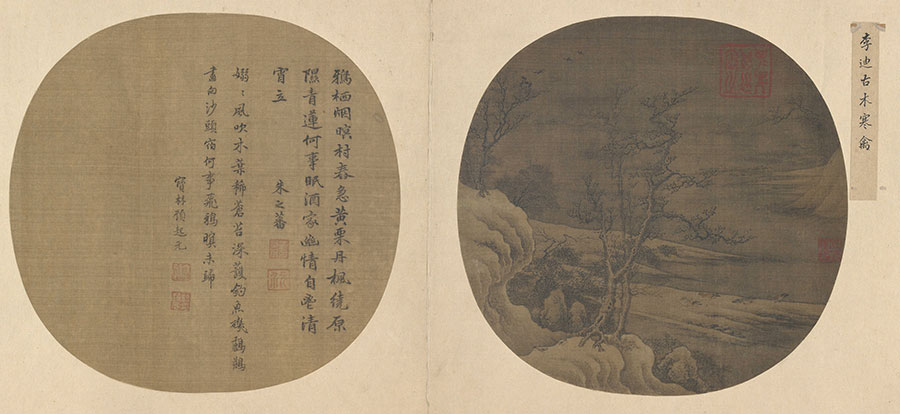 李迪古木寒禽
鴉栖烟暝村舂急黃栗丹楓繞原
隰青蓮何事眠酒家幽情自清
霄立
朱之蕃
嫋〻風吹木葉稀蒼苔深護釣魚磯
盡向沙頭宿何事飛鴉暝未歸
顧起元